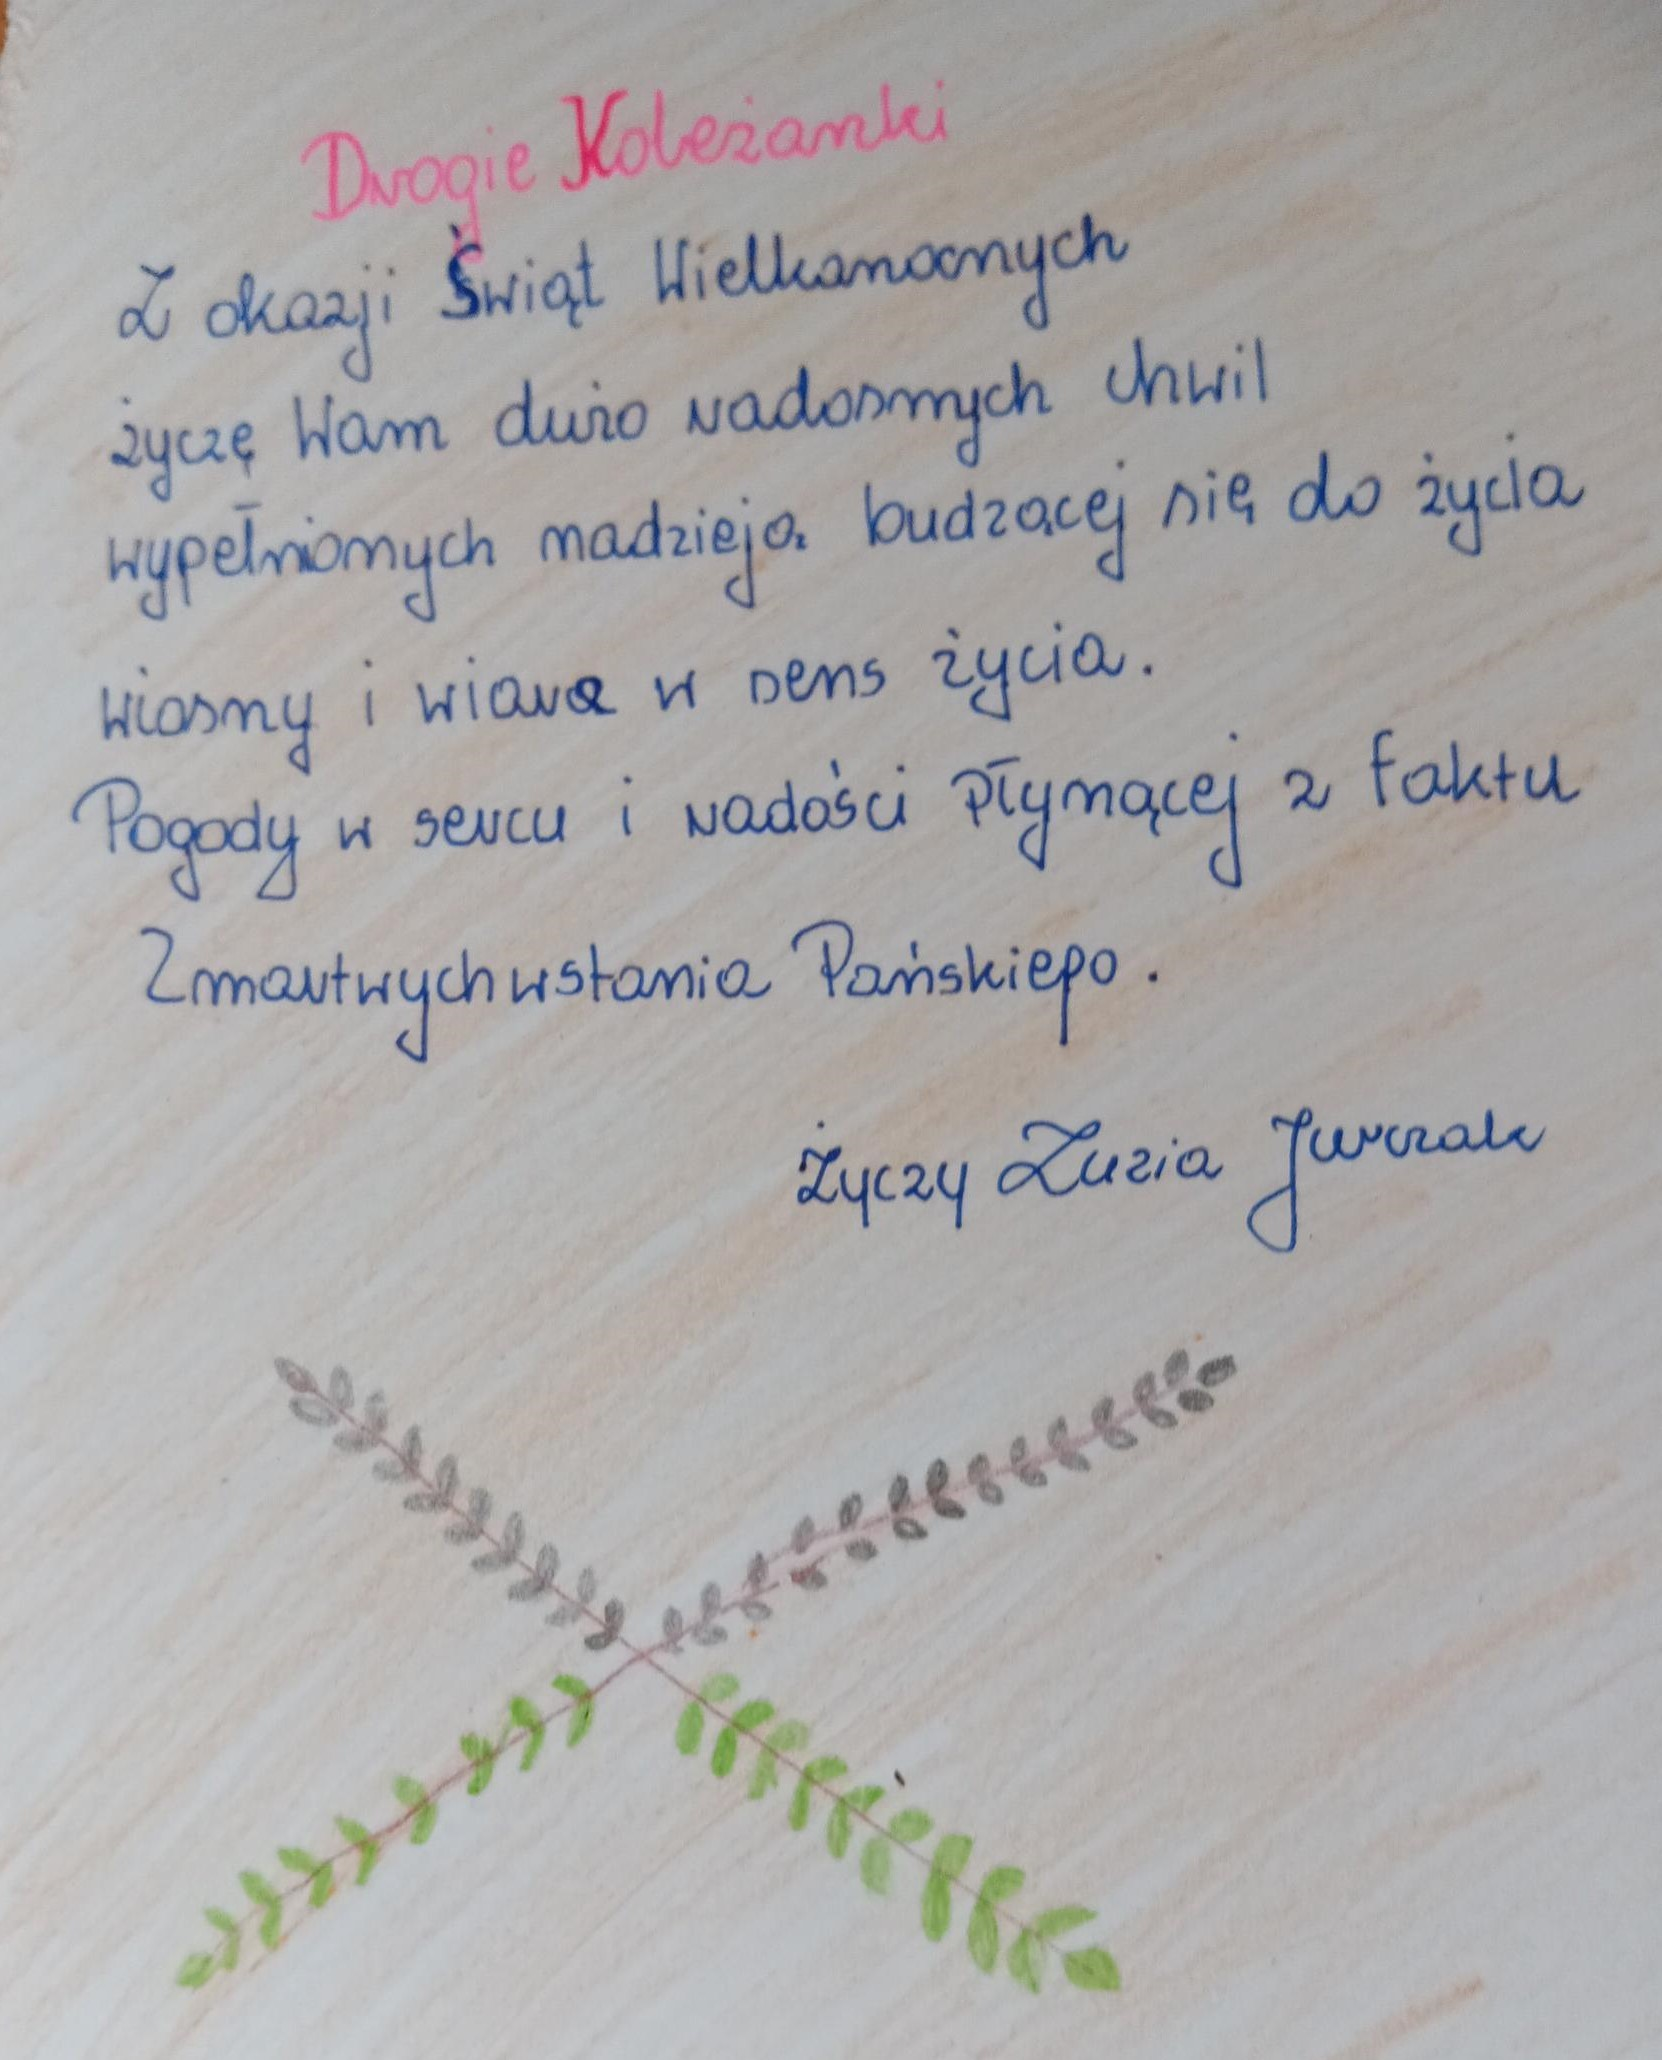 Drogie Koleżanki
Z okazji Świąt Wielkanocnych
życzę Wam dużo radosnych chwil
wypełnionych nadzieją budzącej się do życia
wiosny i wiarą w sens życia.
Pogody w sercu i radości płynącej z faktu
Zmartwychwstania Pańskiego.
Życzy Zuzia Jurczak